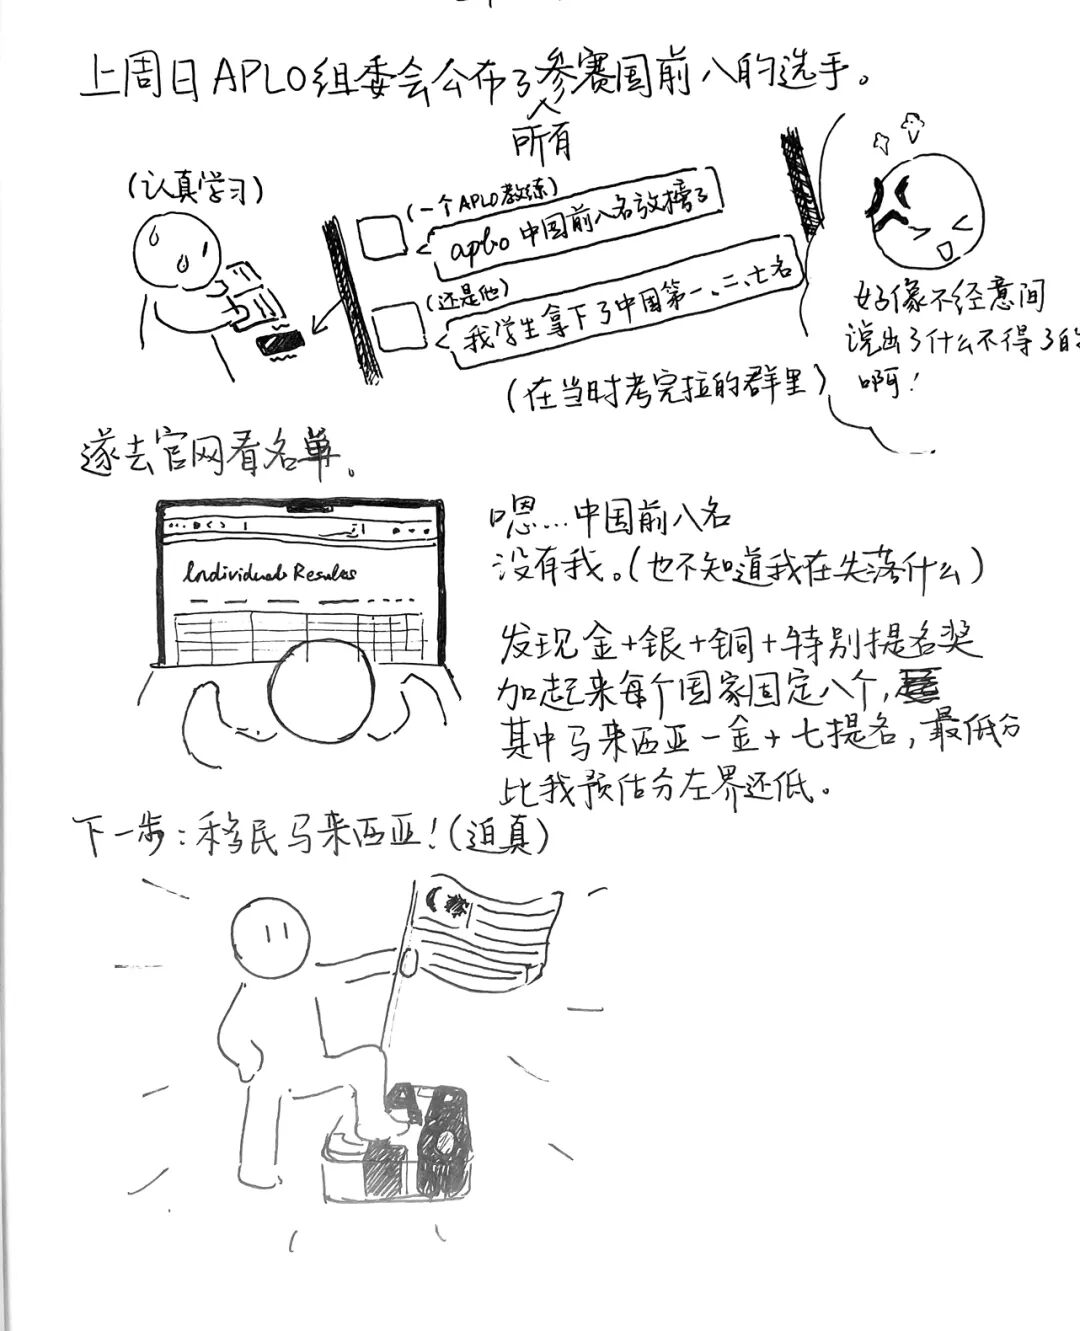 上周日APLO组委会公布了所有参赛国前八的选手。
(认真学习)
(一个APLO教练)
aplo 中国前八名放榜了
(还是他)
我学生拿下了中国第一、二、七名
(在当时考完拉的群里)
好像不经意间
说出了什么不得了的
啊！
遂去官网看名单。
Individual Results
嗯...中国前八名
没有我。(也不知道我在失落什么)
发现金+银+铜+特别提名奖
加起来每个国家固定八个,
其中马来西亚一金+七提名,最低分
比我预估分左界还低。
下一步:移民马来西亚!(迫真)